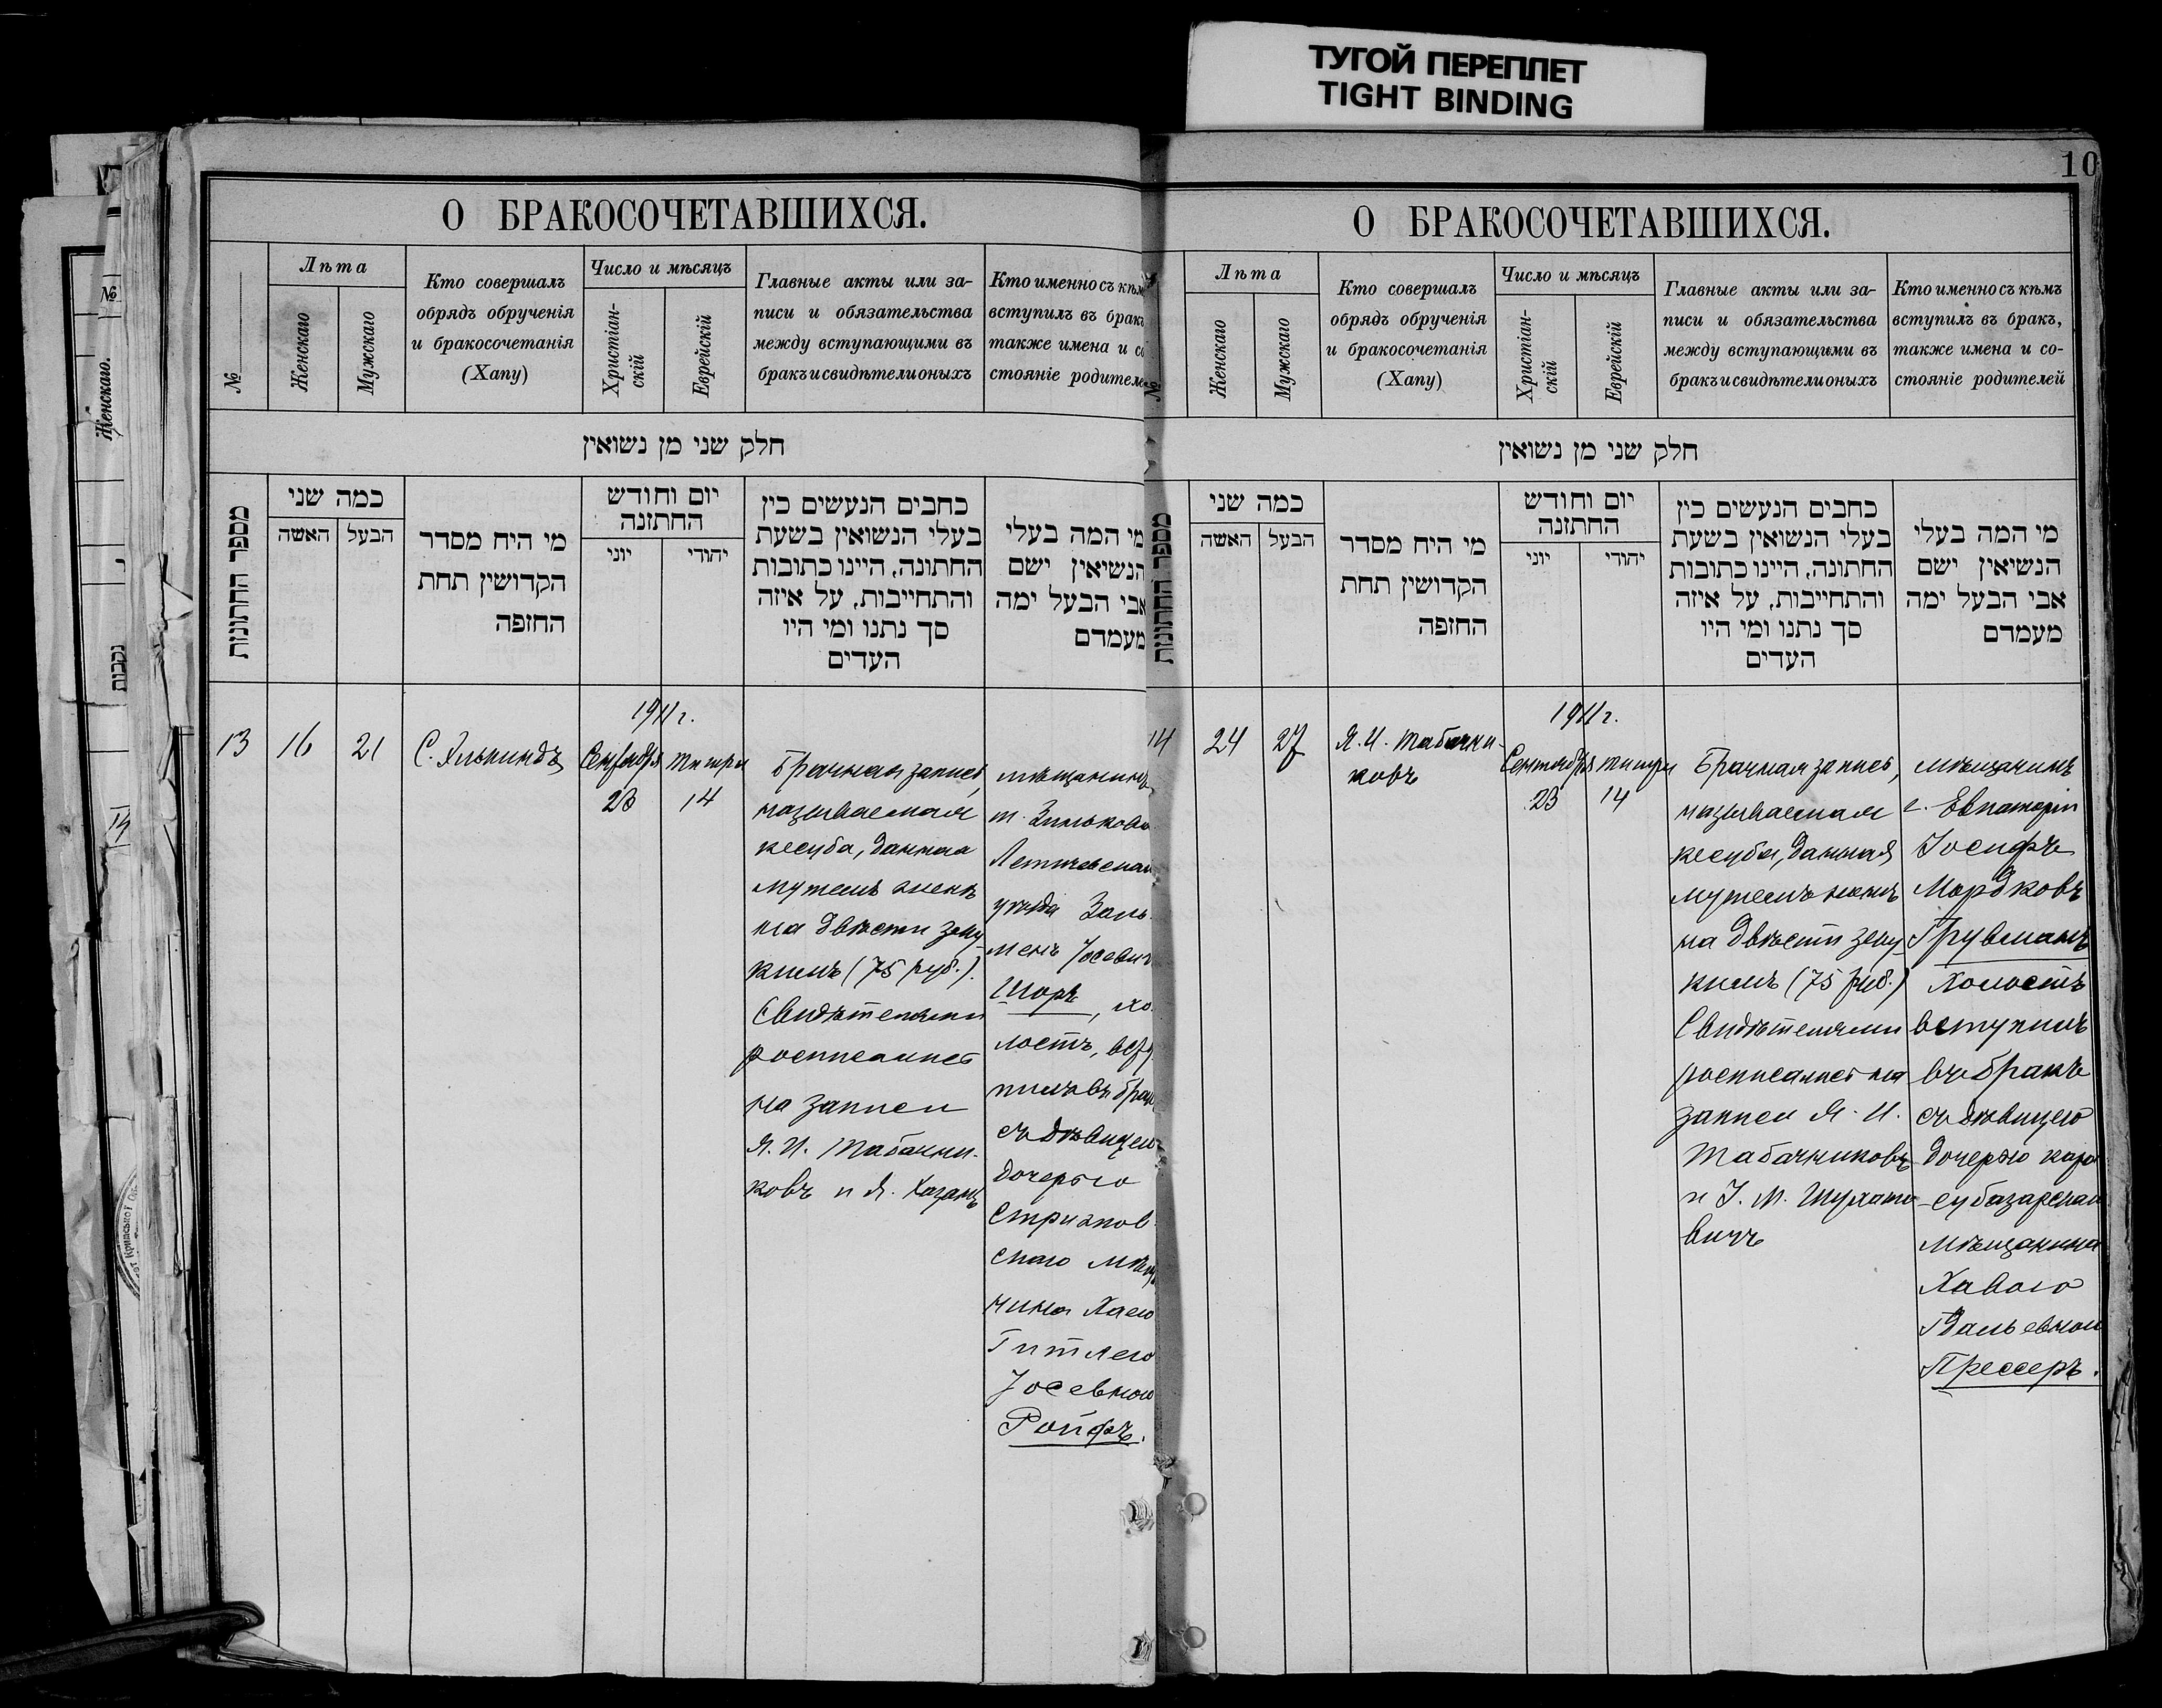 ТУГОЙ ПЕРЕПЛЕТ
TIGHT BINDING
№
Женскаго.
נקבות
14
О БРАКОСОЧЕТАВШИХСЯ.
№
Лѣта
Женскаго
Мужскаго
Кто совершалъ
обрядъ обрученія
и бракосочетанія
(Хапу)
Число и мѣсяцъ
Христіан-
скій
Еврейскій
Главные акты или за-
писи и обязательства
между вступающими въ
бракъ и свидѣтели оныхъ
Кто именно съ кѣм
вступилъ въ бракъ
также имена и со
стояніе родителе
חלק שני מן נשואין
מספר החתונות
כמה שני
האשה
הבעל
מי היח מסדר
הקדושין תחת
החזפה
יום וחודש
החתזנה
יוני
יהודי
כחבים הנעשים כין
בעלי הנשואין בשעת
החתונה, היינו כתובות
והתחייבות, על איזה
סך נתנו ומי היו
העדים
מי המה בעלי
הנשיאין ישם
אבי הבעל ימה
מעמדם
13
16
21
С. Элькиндъ
1911 г.
Сентября
23
Тишри
14
Брачная запись,
называемая
кесуба, данная
мужемъ женѣ
на двѣсти зеку-
кимъ (75 руб.).
Свидѣтелями
росписались
на записи
Я. И. Табачни-
ковъ и Я. Хазанъ
мѣщанинъ
м. Зиньково
Летичевскаго
уѣзда Заль-
менъ Іосевичъ
Шоръ, хо-
лостъ, всту-
пилъ въ бракъ
съ дѣвицею
дочерью
Стрижов-
скаго мѣщ
нина Хаею
Гитлею
Іосевною
Ройфъ.
10
О БРАКОСОЧЕТАВШИХСЯ.
№
Лѣта
Женскаго
Мужскаго
Кто совершалъ
обрядъ обрученія
и бракосочетанія
(Хапу)
Число и мѣсяцъ
Христіан-
скій
Еврейскій
Главные акты или за-
писи и обязательства
между вступающими въ
бракъ и свидѣтели оныхъ
Кто именно съ кѣмъ
вступилъ въ бракъ,
также имена и со-
стояніе родителей
חלק שני מן נשואין
מספר החתונות
כמה שני
האשה
הבעל
מי היח מסדר
הקדושין תחת
החזפה
יום וחודש
החתזנה
יוני
יהודי
כחבים הנעשים כין
בעלי הנשואין בשעת
החתונה, היינו כתובות
והתחייבות, על איזה
סך נתנו ומי היו
העדים
מי המה בעלי
הנשיאין ישם
אבי הבעל ימה
מעמדם
14
24
27
Я. И. Табачни-
ковъ
1911 г.
Сентября
23
Тишри
14
Брачная запись,
называемая
кесуба, данная
мужемъ женѣ
на двѣсти зеку-
кимъ (75 руб.)
Свидѣтелями
росписались на
записи Я. И.
Табачниковъ
и І. М. Шухато-
вичъ
мѣщанинъ
г. Евпаторіи
Іосифъ
Мордковъ
Грувманъ
Холостъ
вступилъ
въ бракъ
съ дѣвицею
дочерью кара-
субазарскаго
мѣщанина
Хавою
Гдальевною
Прессеръ.